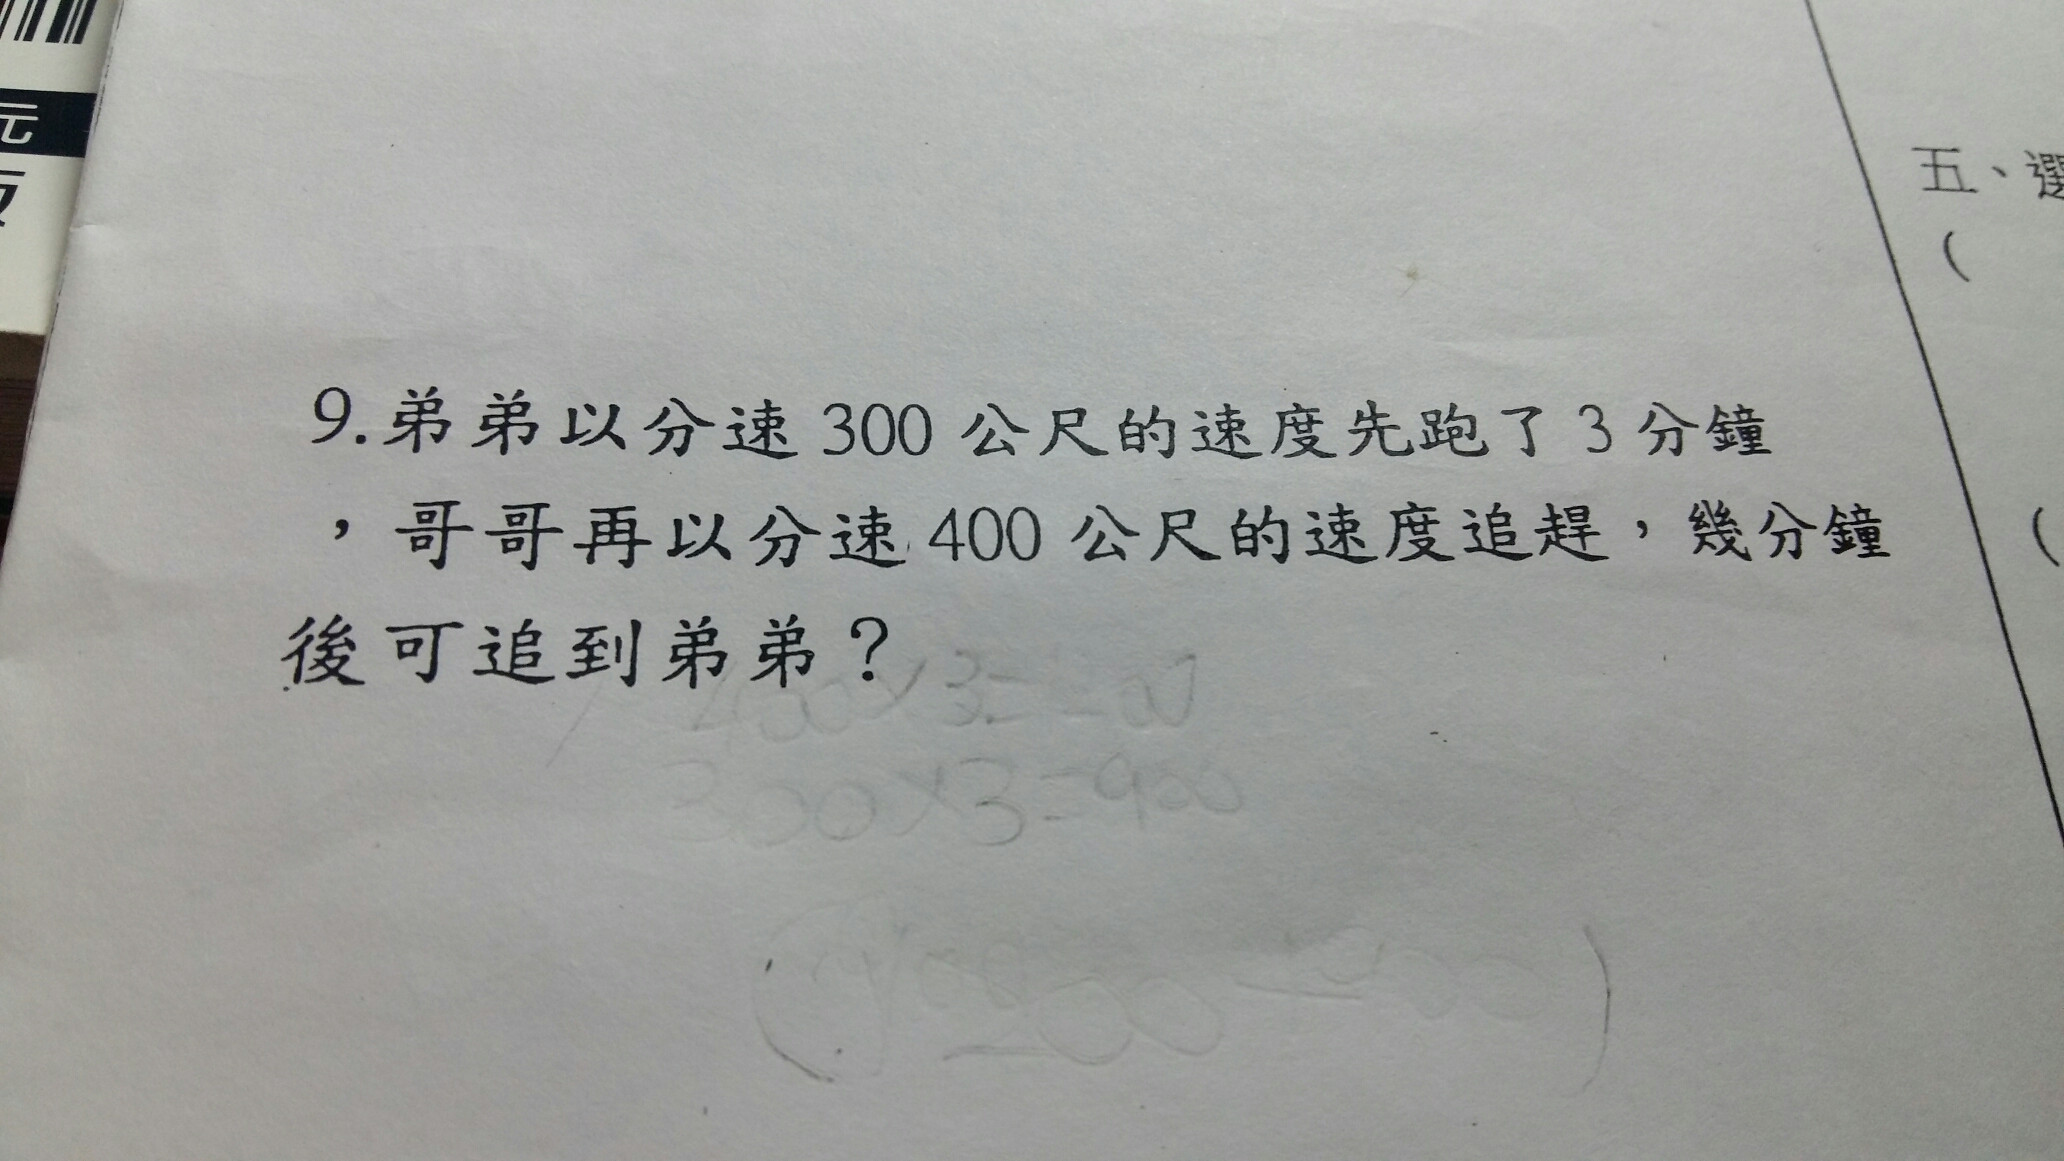 元
五、選
(
9.弟弟以分速300公尺的速度先跑了3分鐘
，哥哥再以分速400公尺的速度追趕，幾分鐘
(
後可追到弟弟？
300×3=900